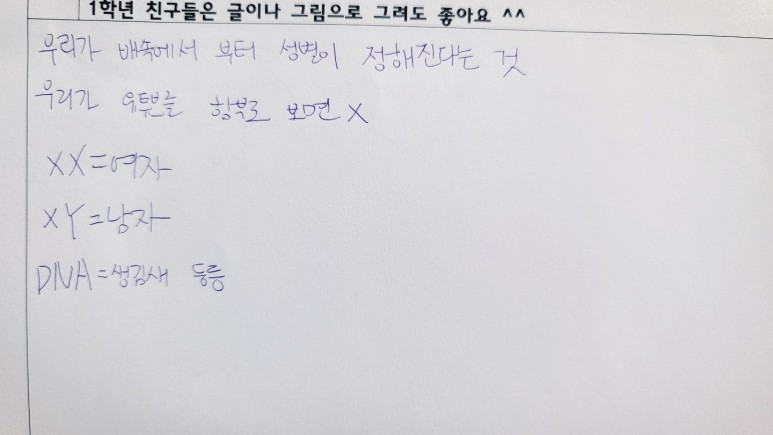 1학년 친구들은 글이나 그림으로 그려도 좋아요 ^^
우리가 배속에서 부터 성별이 정해진다는 것
우리가 유튜브를 함부로 보면 X
XX=여자
XY=남자
DNA=생김새 등등